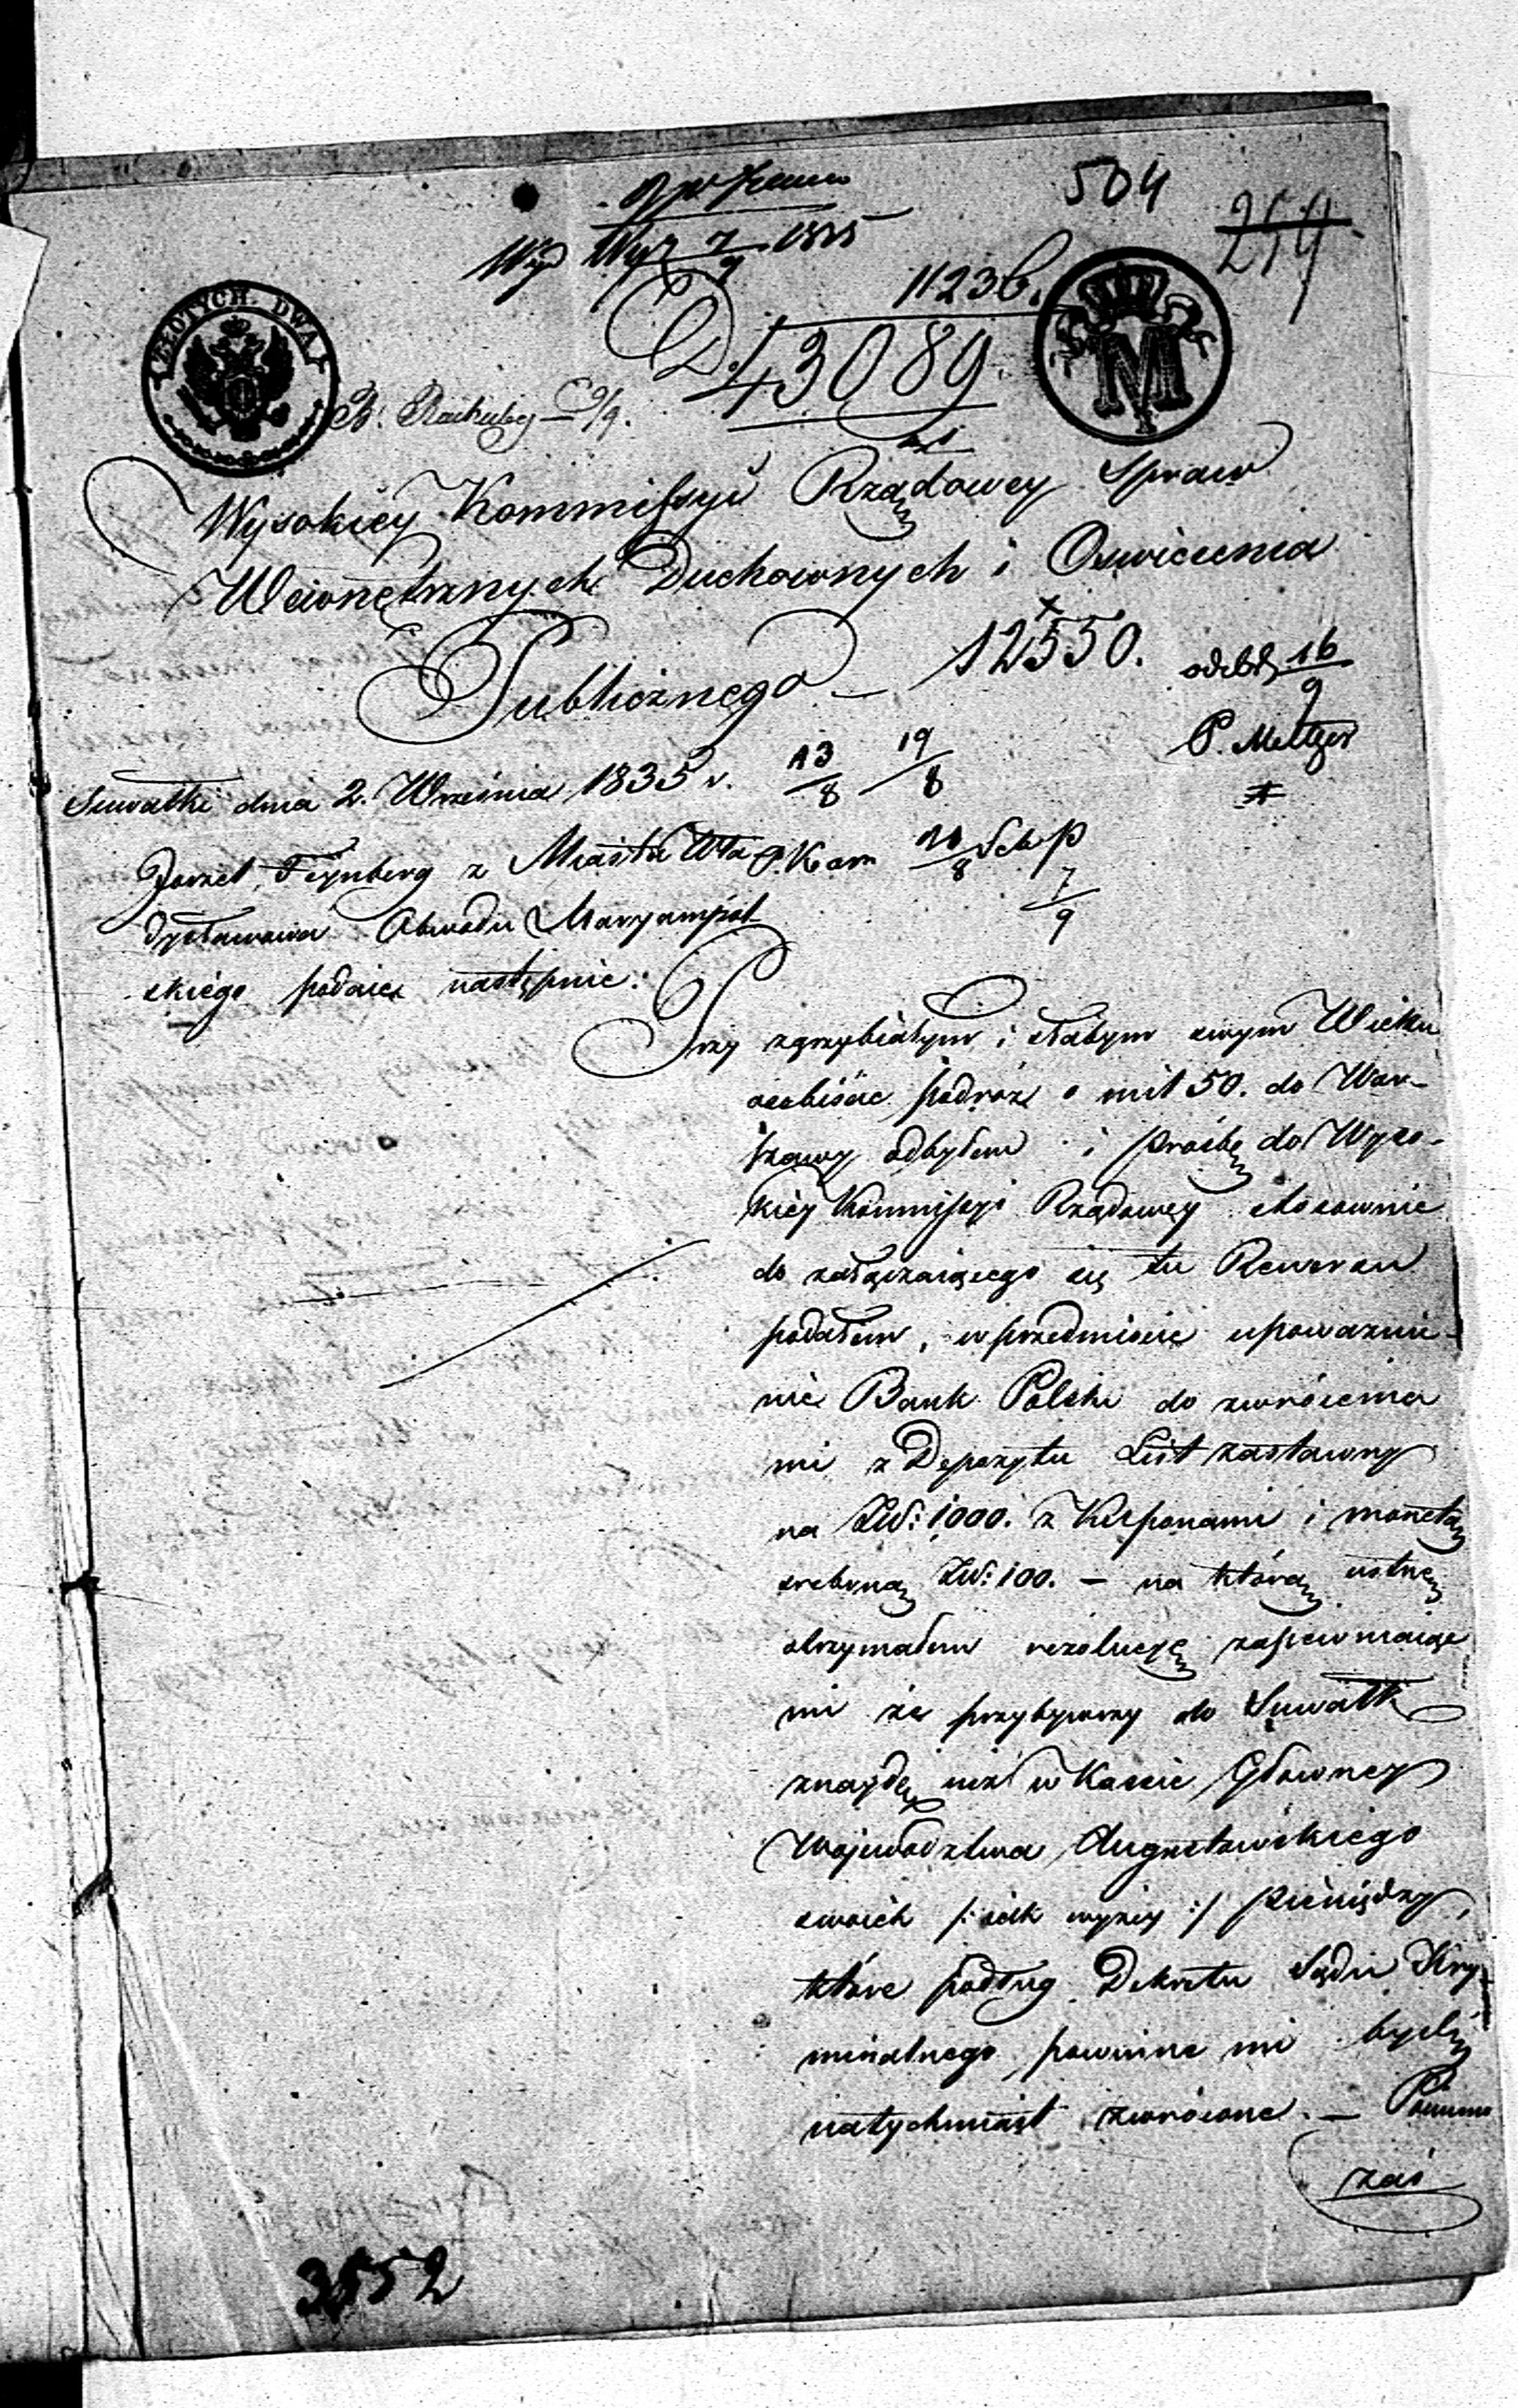 504
254
Wyd 7/9 1835
11236.
ZŁOTYCH DWA
M
D. 43089
9/9.
Wysokiey Kommissyi Rządowey Spraw
Wewnętrznych Duchownych i Oswiecenia
Publicznego — 12550.
odebr 16/9
P. Meltzer
Suwałki dnia 2. Września 1835 r. 13/8 19/8
Jorzel Feynberg z Miasta Wła
dysławowa Obwodu Maryampol
skiego podaie następnie:
7/9
Przy zgrzybiałym i słabym swym Wieku
osobiście podróż o mil 50. do War-
szawy odbyłem i prośbę do Wyso-
kiey Kommissyi Rządowey stosownie
do załączaiącego się tu Rewersu
podałem, w przedmiocie upoważnie-
nie Bank Polski do zwrócenia
mi z Depozytu List zastawny
na Złł: 1000. z Kuponami i monetą
srebrną Złł: 100. — na którą ustnę
otrzymałem rezolucyę zapewniaiąc
mi że przybywszy do Suwałk
znaydę iuż w Kassie Główney
Wojewodztwa Augustowskiego
swoich /: iak wyżey :/ pieniędzy,
które podług Dekretu Sądu Kry-
minalnego powinne mi bydź
natychmiast zwrócone. — Pomimo
zaś
3552